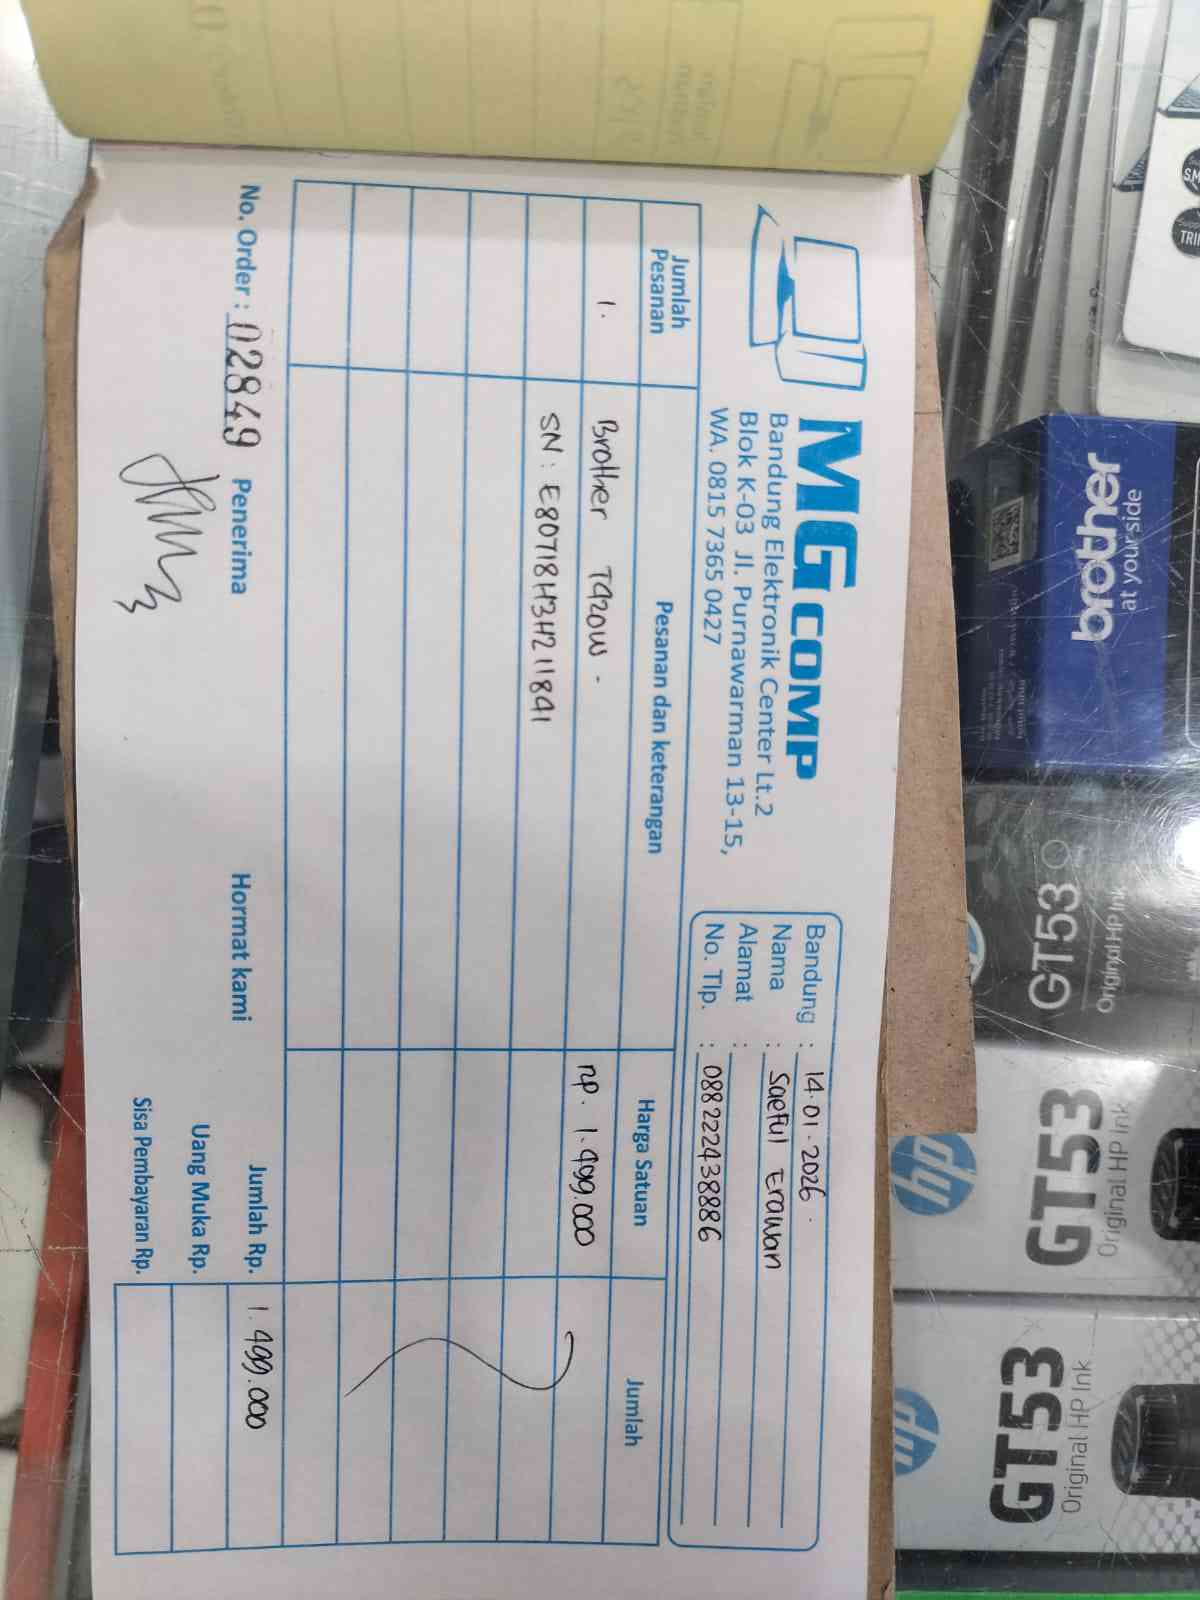 MG COMP
Bandung Elektronik Center Lt.2
Blok K-03 Jl. Purnawarman 13-15,
WA. 0815 7365 0427
Bandung : 14.01.2026.
Nama : Saeful Erawan
Alamat :
No. Tlp. : 088222438886
Jumlah Pesanan
Pesanan dan keterangan
Harga Satuan
Jumlah
1. Brother T920W - Rp. 1.499.000
SN : E80718H3H211841
No. Order : 02849
Penerima
Hormat kami
Jumlah Rp. 1.499.000
Uang Muka Rp.
Sisa Pembayaran Rp.
brother
at your side
GT53
Original HP Ink
hp
GT53
Original HP Ink
hp
GT53
Original HP Ink